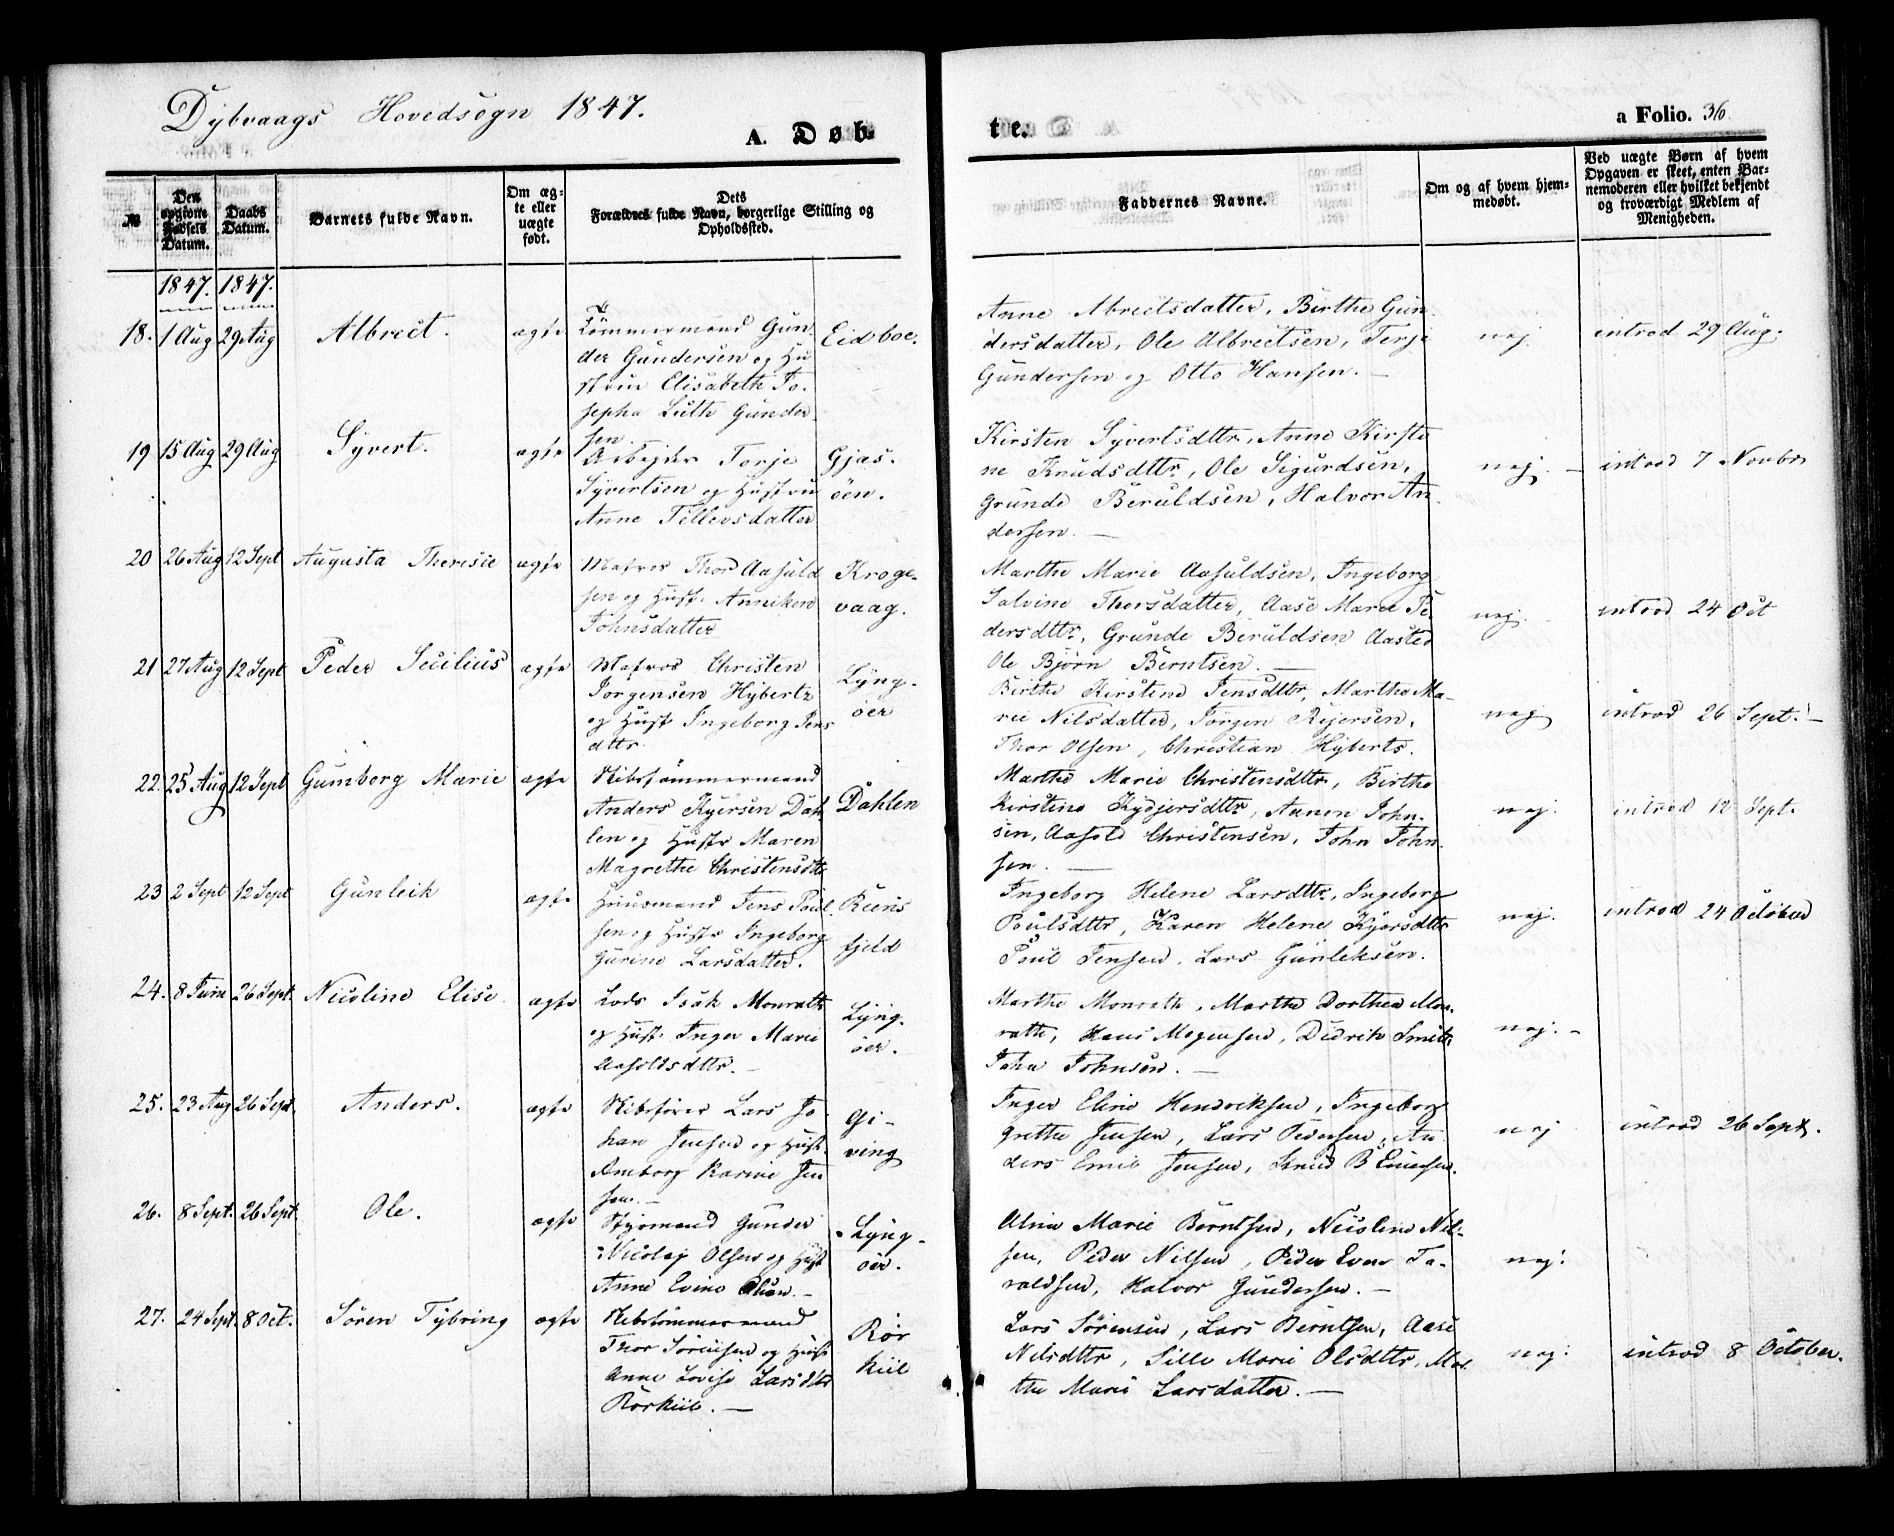 Dybvaags Hovedsogn 1847.
A. Døbte.
a Folio. 36.
№
Den opgivne Fødsels Datum.
Daabs Datum.
Barnets fulde Navn.
Om ægte eller uægte født.
Dets Forældres fulde Navn, borgerlige Stilling og Opholdssted.
Faddernes Navne.
Om og af hvem hjemmedøbt.
Ved uægte Børn af hvem Opgaven er skeet, enten Barnemoderen eller hvilket bekjendt og troværdigt Medlem af Menigheden.
1847. 1847.
18. 1 Aug 29 Aug Albrect. ægte
Tømmermand Gun-
der Gundersen og Hu
strue Elisabeth Jo-
sepha Luth Gunder
sen.
Eidboe.
Anne Albrectsdatter, Birthe Gun-
dersdatter, Ole Albrectsen, Terje
Gundersen og Otto Hansen. —
nej.
introd 29 Aug.
19 15 Aug 29 Aug Syvert. ægte
Arbejder Torje
Syvertsen og Hustru
Anne Tellevsdatter
Gjæs-
öen.
Kirsten Syvertsdttr, Anne Kirsti
ne Knudsdttr, Ole Sigurdsen,
Grunde Beruldsen, Halvor An
dersen. —
nej. —
introd 7 Novbr
20 26 Aug 12 Sept Augusta Theresie ægte
Matros Thor Aasuld
sen og Hust. Anniken
Johnsdatter
Kroge-
vaag.
Marthe Marie Aasuldsen, Ingeborg
Salvine Thorsdatter, Aase Marie Pe
dersdttr, Grunde Beruldsen Aasted
Ole Bjørn Berntsen. —
nej.
introd 24 Oct
21 27 Aug 12 Sept Peder Secilius ægte
Matros Christen
Jørgensen Hybertz
og Hust Ingeborg Jens
dttr.
Lyng-
öer
Birthe Kirstine Jensdttr, Marthe Ma-
rie Nilsdatter, Jørgen Rejersen,
Thor Olsen, Christian Hyberts.
nej
introd 26 Sept. —
22. 25 Aug 12 Sept Gumborg Marie ægte
Skibstömmermand
Anders Kyersen Dah
len og Hustr Maren
Magrethe Christensdttr
Dahlen
Marthe Marie Christensdttr, Birthe
Kirstine Kydjersdttr, Annen John-
sen, Aasold Christensen, John John-
sen. —
nej.
introd 12 Sept.
23 2 Sept 12 Sept Gunleik ægte
Huusmand Jens Poul
sen og Hustr Ingeborg
Gurine Larsdatter.
fjeld
Ingeborg Helene Larsdttr, Ingeborg
Poulsdttr, Karen Helene Kjærsdttr
Poul Jensen, Lars Gunleksen.
nej.
introd 24 October
24. 8 Juni 26 Sept. Nicoline Elise. ægte
Lods Isak Monrath
og Hust. Inger Marie
Aasoldsdttr. —
Lyng-
öer.
Marthe Monrath, Marthe Dorthea Mon-
rath, Hans Mogensen, Didrik Smith
John Johnsen. —
nej. —
25. 23 Aug 26 Sept. Anders. ægte
Skibsfører Lars Jo
han Jensen og Hust.
Amborg Karine Jen
sen. —
Gi-
ving
Inger Eline Hendriksen, Ingeborg
Grethe Jensen, Lars Pedersen, An
ders Emil Jensen, Knud B Enersen.
nej
introd 26 Sept.
26. 8 Sept. 26 Sept. Ole. ægte
Styrmand Gunder
Nicolaj Olsen og Hust
Anne Evine Olsen. —
Lyng-
öer.
Alina Marie Berntsen, Nicoline Nil-
sen, Peder Nilsen, Peder Evens Ta-
raldsen, Halvor Gundersen. —
nej.
27. 24 Sept. 8 Oct. Sören Tybring ægte
Skibstömmermand
Thor Sörensen og Hust
Anne Lovise Larsdttr
Rörkiil. —
Rör
kiil
Lars Sörensen, Lars Berntsen, Aase
Nilsdttr, Sille Marie Olsdttr, Mar-
the Marie Larsdatter. —
nej.
introd 8 October.